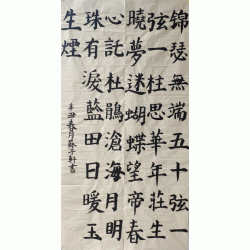 錦瑟無端五十弦一
弦一柱思華年莊生
曉夢迷蝴蝶望帝春
心託杜鵑滄海月明
珠有淚藍田日暖玉
生煙
辛丑春月蘇子軒書